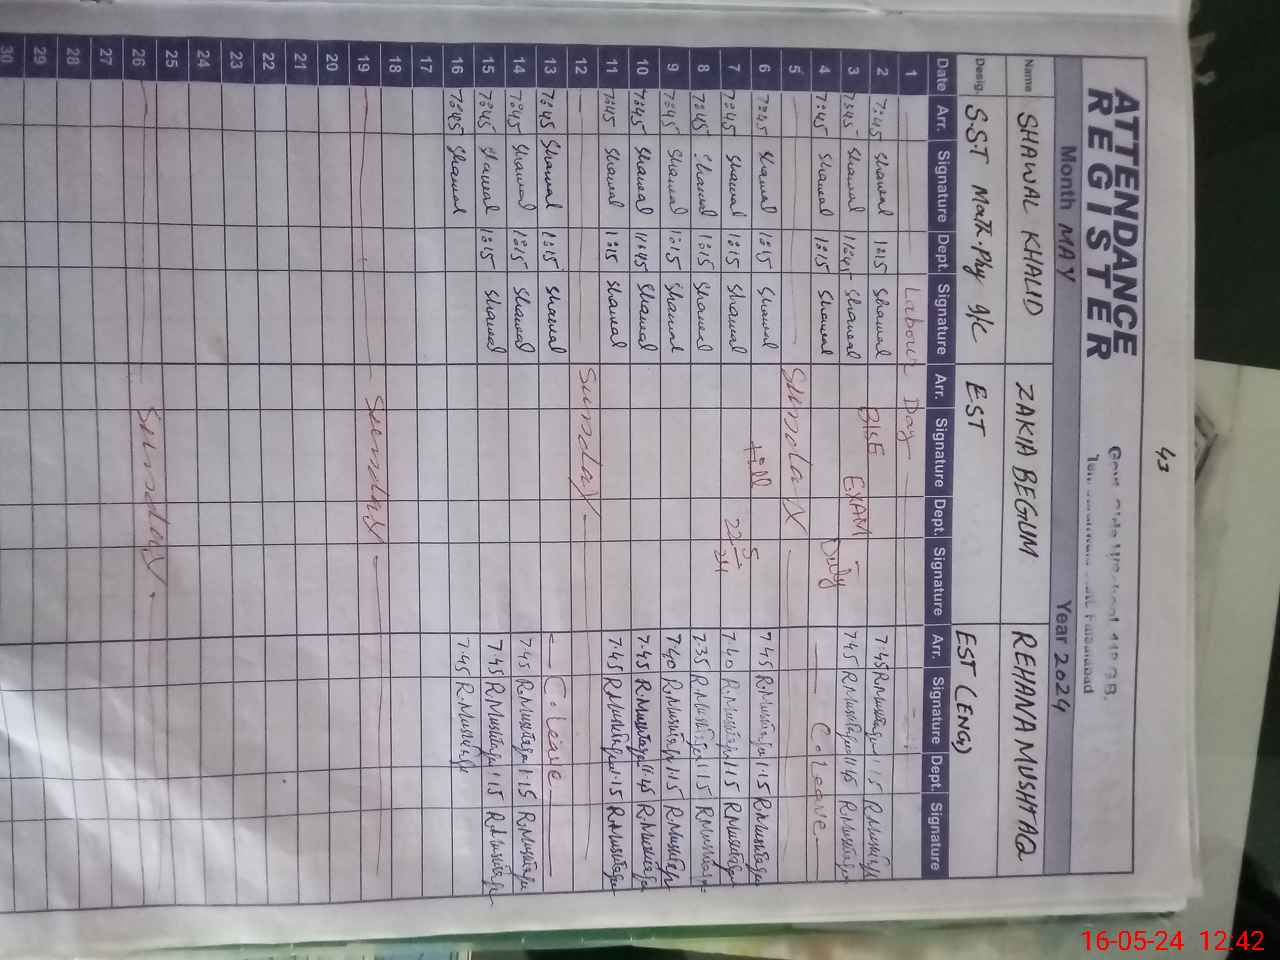 43
ATTENDANCE
REGISTER
Month MAY Year 2024
Name SHAWAL KHALID ZAKIA BEGUM REHANA MUSHTAQ
Desig. S.S.T Math-Phy I/C EST EST (ENG)
Date Arr. Signature Dept. Signature Arr. Signature Dept. Signature Arr. Signature Dept. Signature
1 Labour Day
2 7:45 Shawal 1:15 Shawal BISE 7.45 R.Mushtaq 1.15 R.Mushtaq
3 7:45 Shawal 11:45 Shawal EXAM 7.45 R.Mushtaq 11.45 R.Mushtaq
4 7:45 Shawal 1:15 Shawal Duty C. Leave
5 Sunday
6 7:45 Shawal 1:15 Shawal till 7.45 R.Mushtaq 1.15 R.Mushtaq
7 7:45 Shawal 1:15 Shawal 22/5/24 7.40 R.Mushtaq 1.15 R.Mushtaq
8 7:45 Shawal 1:15 Shawal 7.35 R.Mushtaq 1.15 R.Mushtaq
9 7:45 Shawal 1:15 Shawal 7.40 R.Mushtaq 1.15 R.Mushtaq
10 7:45 Shawal 11:45 Shawal 7.45 R.Mushtaq 11.45 R.Mushtaq
11 7:45 Shawal 1:15 Shawal 7.45 R.Mushtaq 1.15 R.Mushtaq
12 Sunday
13 7:45 Shawal 1:15 Shawal C. Leave
14 7:45 Shawal 1:15 Shawal 7.45 R.Mushtaq 1.15 R.Mushtaq
15 7:45 Shawal 1:15 Shawal 7.45 R.Mushtaq 1.15 R.Mushtaq
16 7:45 Shawal 7.45 R.Mushtaq
17
18
19 Sunday
20
21
22
23
24
25
26 Sunday
27
28
29
30
16-05-24 12:42